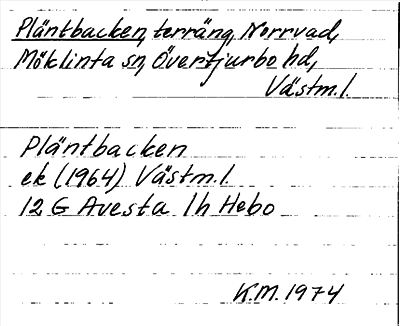 Pläntbacken, terräng, Norrvad,
Möklinta sn, Övertjurbo hd,
Västm.l.
Pläntbacken
ek (1964) Västm.l.
12 G Avesta 1h Hebo
K.M. 1974